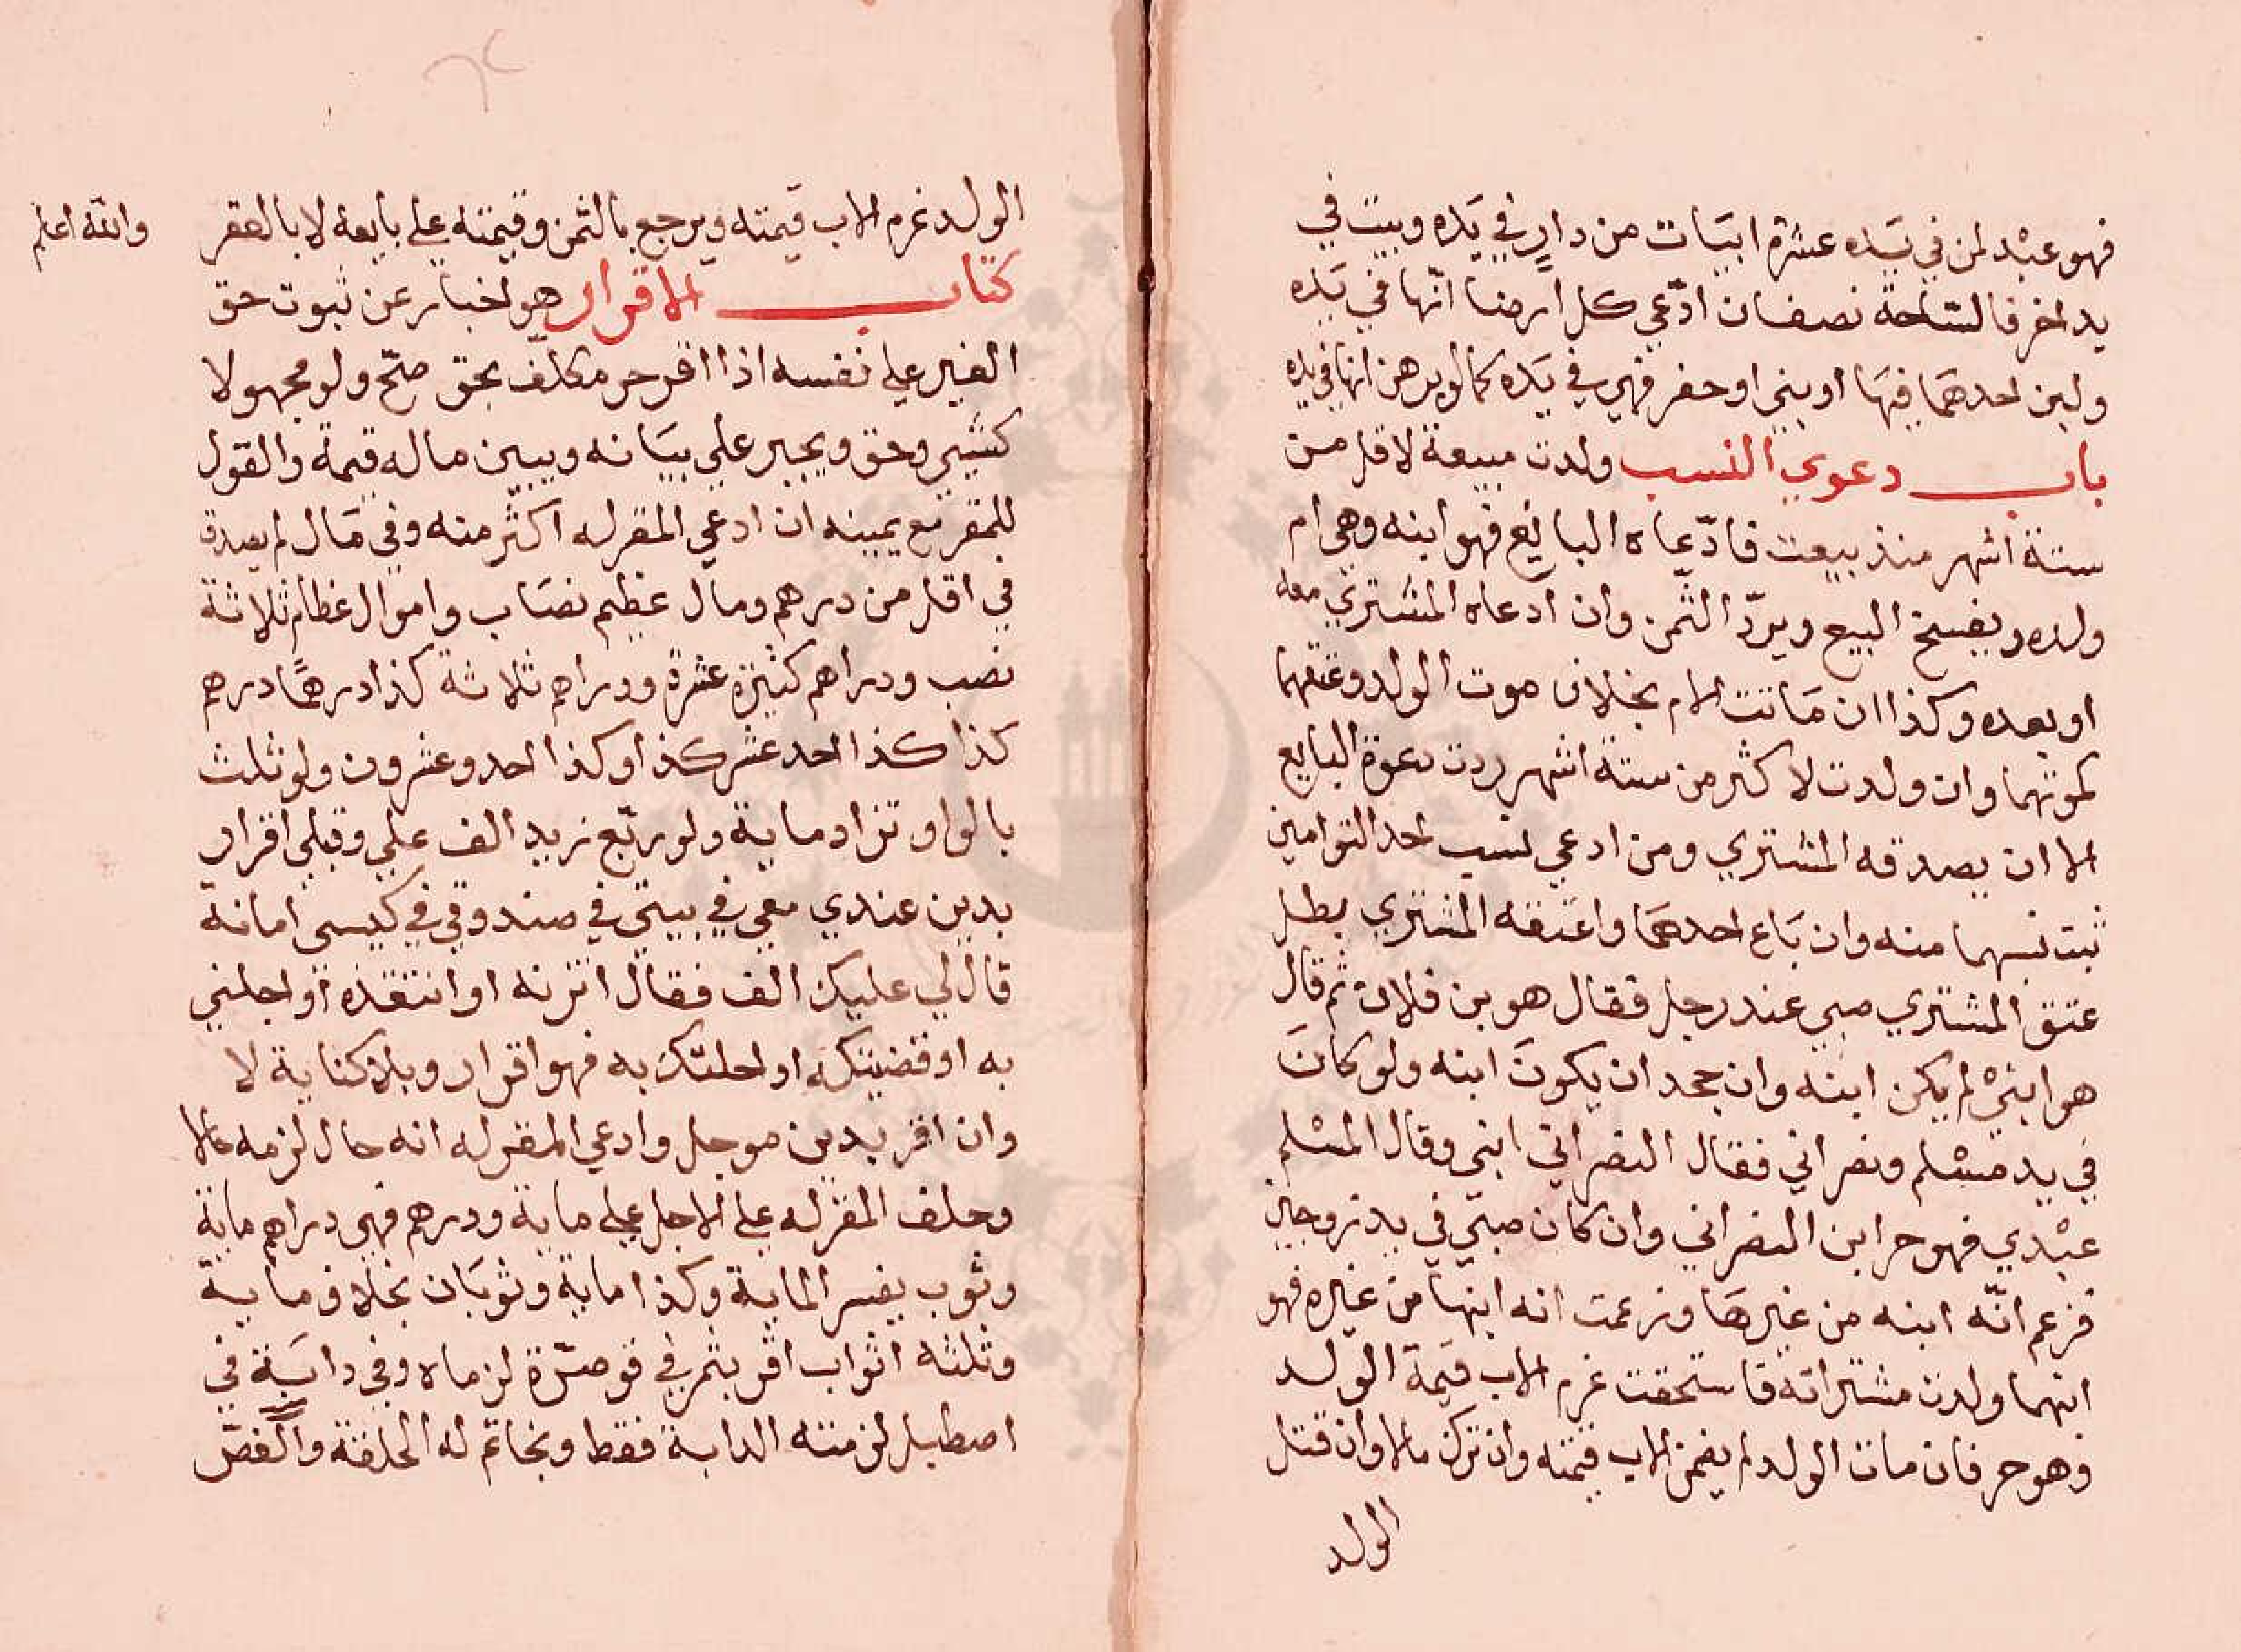 فهو عبد لمن في يده عشرة ابيات من دار في يده وبيت في
يد اخر فالساحة نصفان ادّعي كل ارضا انّها في يده
ولبن احدهما فيها او بني او حفر فهي في يده كما لو برهن انها في يده
باب دعوي النسب ولدت مبيعة لاقل من
ستة اشهر منذ بيعت فادّعاه البايع فهو ابنه وهي ام
ولده ويفسخ البيع ويردّ الثّمن وان ادعاه المشتري معه
او بعده وكذا ان ماتت الام بخلاف موت الولد وعتقهما
كموتهما وان ولدت لاكثر من ستة اشهر ردت دعوة البايع
الا ان يصدقه المشتري ومن ادعي نسب احد التوامين
ثبت نسبهما منه وان باع احدهما واعتقه المشتري بطل
عتق المشتري صبي عند رجل فقال هو بن فلان ثم قال
هو ابني لم يكن ابنه وان جحد ان يكون ابنه ولو كان
في يد مسلم ونصراني فقال النصراني ابني وقال المسلم
عبدي فهو حر ابن النصراني وان كان صبيّ في يد زوجين
فزعم انّه ابنه من غيرها وزعمت انه ابنها من غيره فهو
ابنهما ولدت مشتراته فاستحقت غرم الاب قيمة الولد
وهو حر فان مات الولد لم يضمن الاب قيمته وان ترك مالا وان قتل
الولد
الولد غرم الاب قيمته ويرجع بالثمن وقيمته علي بايعه لا بالعقر والله اعلم
كتاب الاقرار هو اخبار عن ثبوت حق
الغير علي نفسه اذا اقر حر مكلف بحق صحّ ولو مجهولا
كشيي وحق ويجبر علي بيانه ويبين ماله قيمة والقول
للمقر مع يمينه ان ادعي المقر له اكثر منه وفي مال لم يصدق
في اقل من درهم ومال عظيم نصاب واموال عظام ثلاثة
نصب ودراهم كثيرة عشرة ودراهم ثلاثة كذا درهمًا درهم
كذا كذا احد عشر كذا وكذا احد وعشرون ولو ثلث
بالواو تزاد ماية ولو ربّع زيد الف علي وقبلي اقرار
بدين عندي معي في بيتي في صندوقي في كيسي امانة
قال لي عليك الف فقال اتزنه او انتقده او اجلني
به او قضيتكه او احلتك به فهو اقرار وبلا كناية لا
وان اقر بدين موجل وادعي المقر له انه حال لزمه حالا
وحلف المقر له علي الاجل علي ماية ودرهم فهي دراهم ماية
وثوب يفسر الماية وكذا ماية وثوبان بخلاف ماية
وثلثه اثواب اقر بتمر في قوصرّة لزماه وفي دابة في
اصطبل لزمته الدابة فقط وبخاتم له الحلقة والفصّ